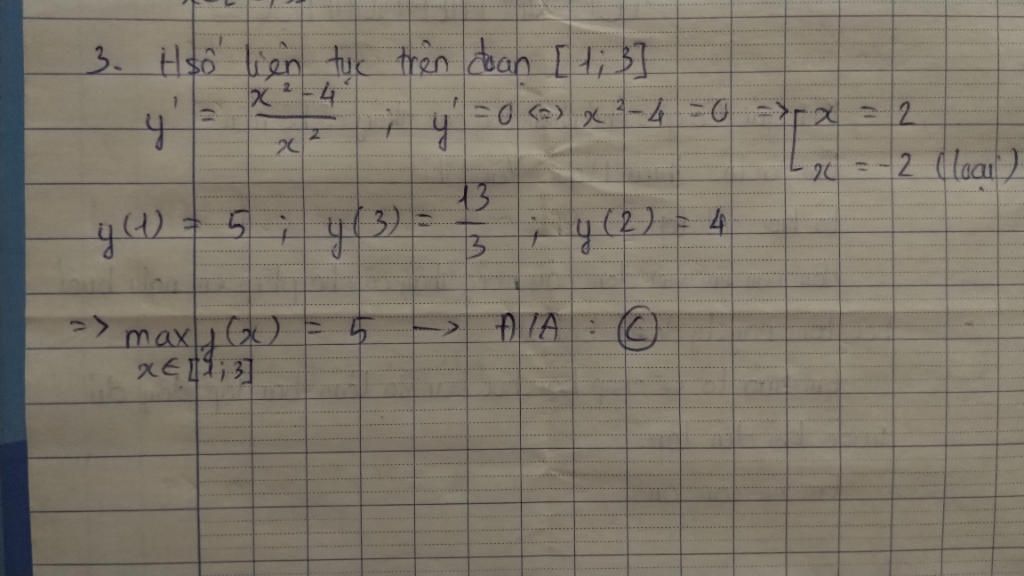 3. Hsố liên tục trên đoạn [1;3]
y' = (x² - 4)/x² ; y' = 0 <=> x² - 4 = 0 => [ x = 2
x = -2 (loại)
y(1) = 5 ; y(3) = 13/3 ; y(2) = 4
=> max y(x) = 5 → Đ/A : C
x∈[1;3]